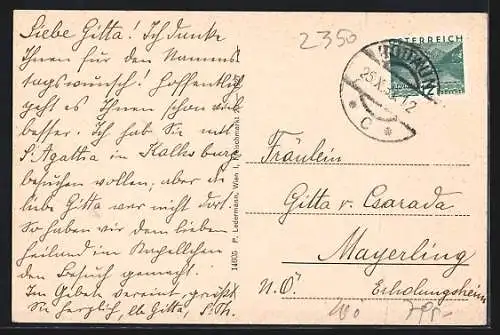 Liebe Gitta! Ich danke
Ihnen für den Namens
tagswunsch! Hoffentlich
geht es Ihnen schon viel
besser. Ich hab Sie mit
S'Agattia in Kalksburg
besuchen wollen, aber die
liebe Gitta war nicht dort.
So haben wir dem lieben
Heiland im Kapellchen
den Besuch gemacht.
Im Gebet vereint, grüßt
Sie herzlich, Gitta,
14605 P. Ledermann, Wien I, Fleischmarkt
2350
ÖSTERREICH
25.X.32 12
* C *
Fräulein
Gitta v. Csarada
Mayerling
N.Ö. Erholungsheim